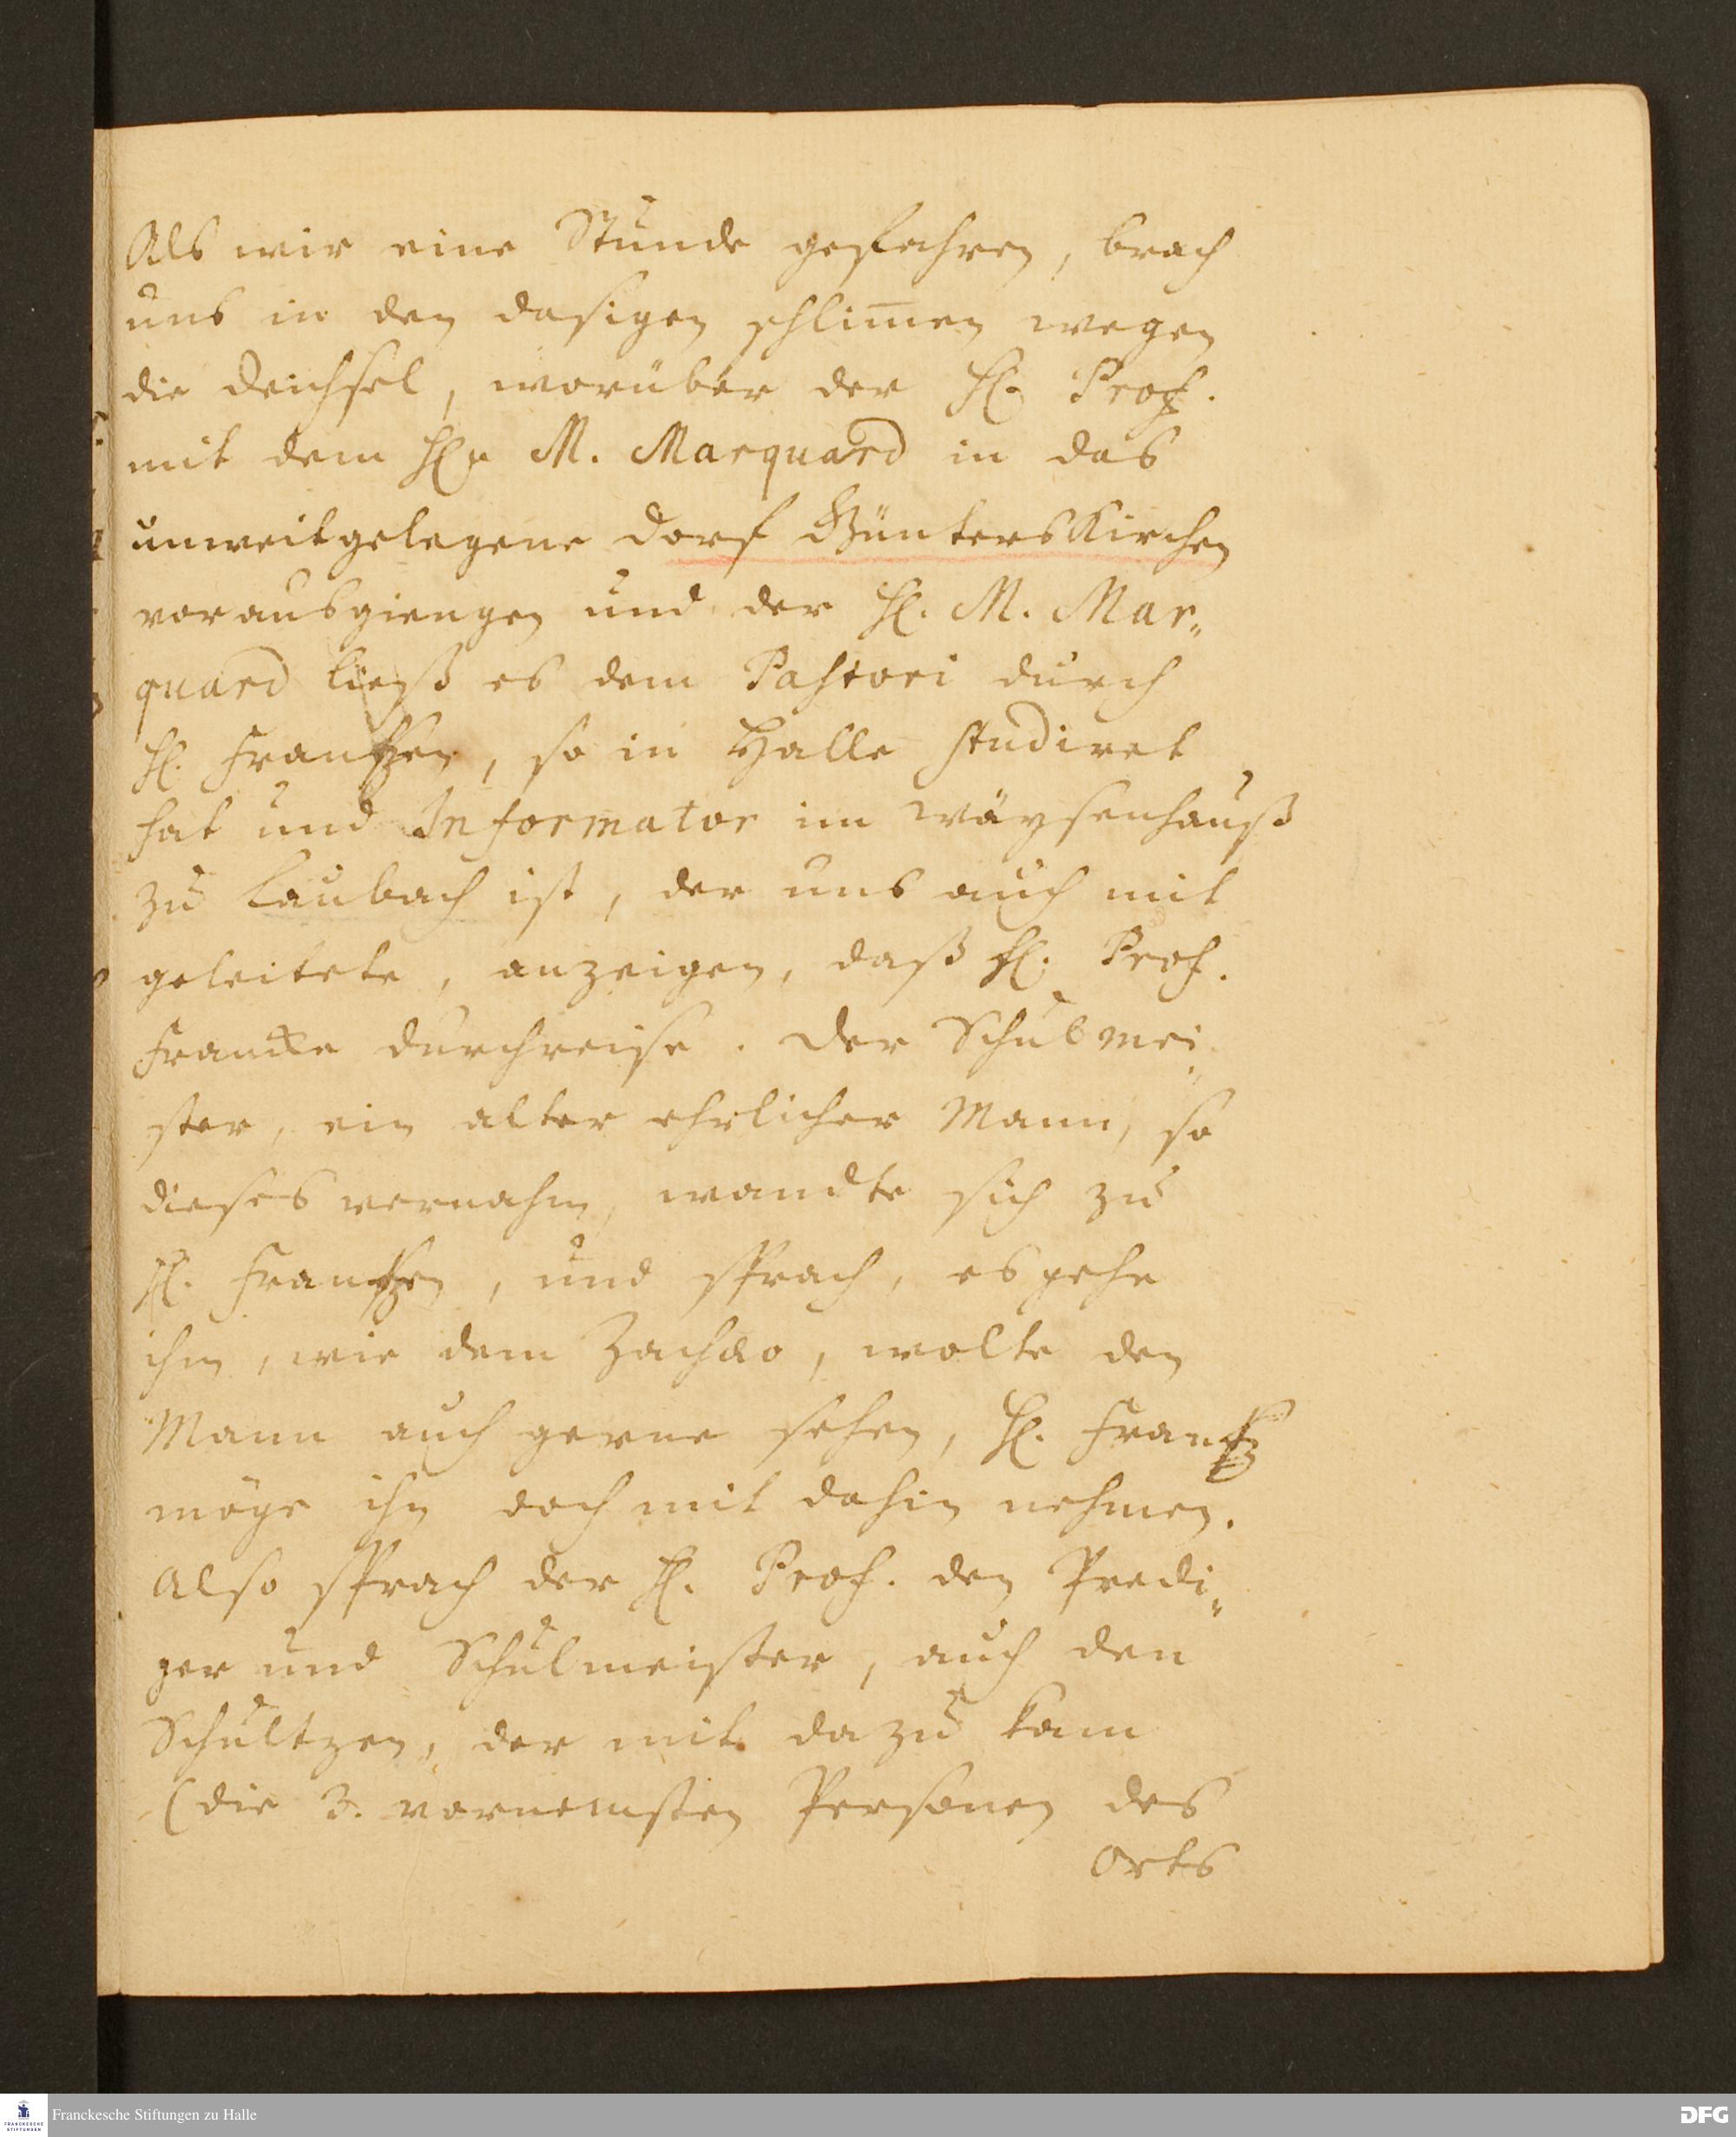 Als wir eine Stunde gefahren, brach
uns in den dasigen schlim̅en wegen
die Deichsel, worüber der H. Prof.
mit dem H. M. Marquard in das
unweit gelegene Dorf Günterskirchen
vorausgiengen und der H. M. Mar„
quard ließ es dem Pastori durch
H. Frantzen, so in Halle studiret
hat und Informator im Wäysenhauß
zu Laubach ist, der uns auch mit
geleitete, anzeigen, daß H. Prof.
Francke durchreise. Der Schulmei„
ster, ein alter ehrlicher Mann, so
dieses vernahm, wandte sich zu
H. Frantzen, und sprach, es gehe
ihm, wie dem Zachæo, wolte den
Mann auch gerne sehen, H. Frantz
möge ihn doch mit dahin nehmen.
Also sprach der H. Prof. den Predi„
ger und Schulmeister, auch den
Schultzen, der mit dazu kam
(die 3. vornemsten Personen des
Orts
Franckesche Stiftungen zu Halle
FRANCKESCHE STIFTUNGEN
DFG